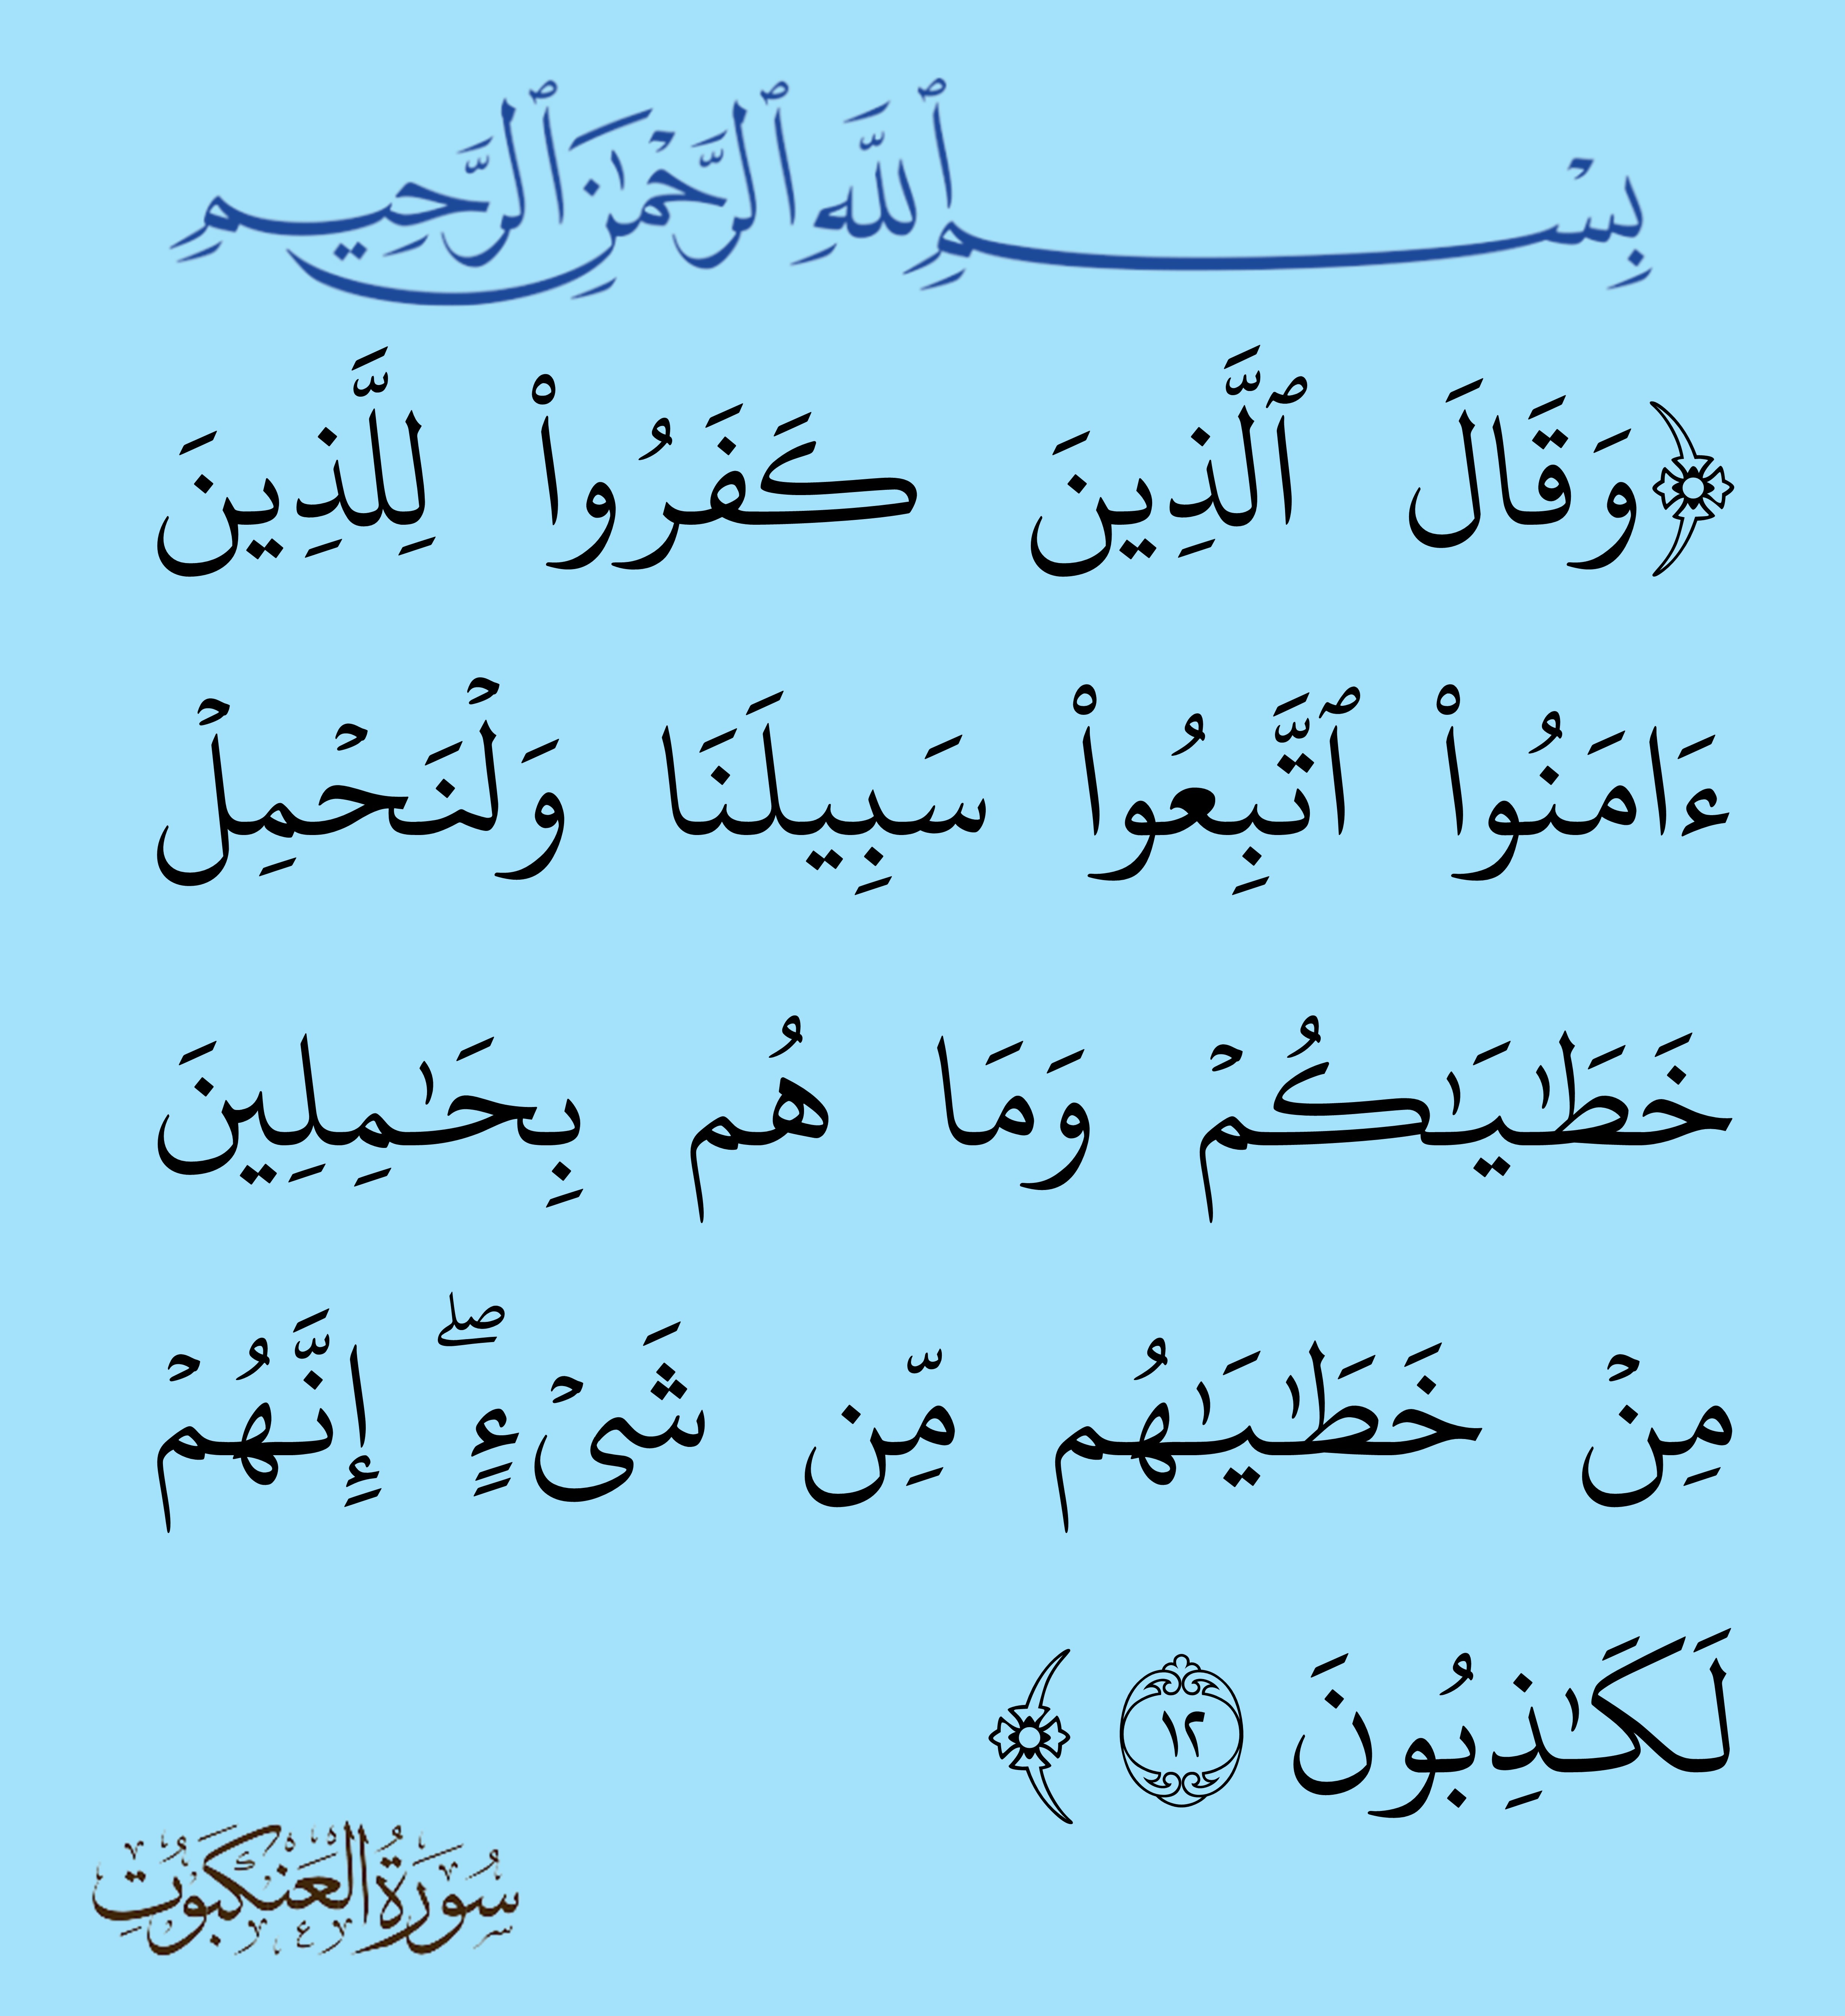 بِسْمِ ٱللَّهِ ٱلرَّحْمَٰنِ ٱلرَّحِيمِ
﴿وَقَالَ ٱلَّذِينَ كَفَرُوا۟ لِلَّذِينَ
ءَامَنُوا۟ ٱتَّبِعُوا۟ سَبِيلَنَا وَلْنَحْمِلْ
خَطَٰيَٰكُمْ وَمَا هُم بِحَٰمِلِينَ
مِنْ خَطَٰيَٰهُم مِّن شَىْءٍ ۖ إِنَّهُمْ
لَكَٰذِبُونَ ١٢ ﴾
سُورَةُ العَنْكَبُوتِ